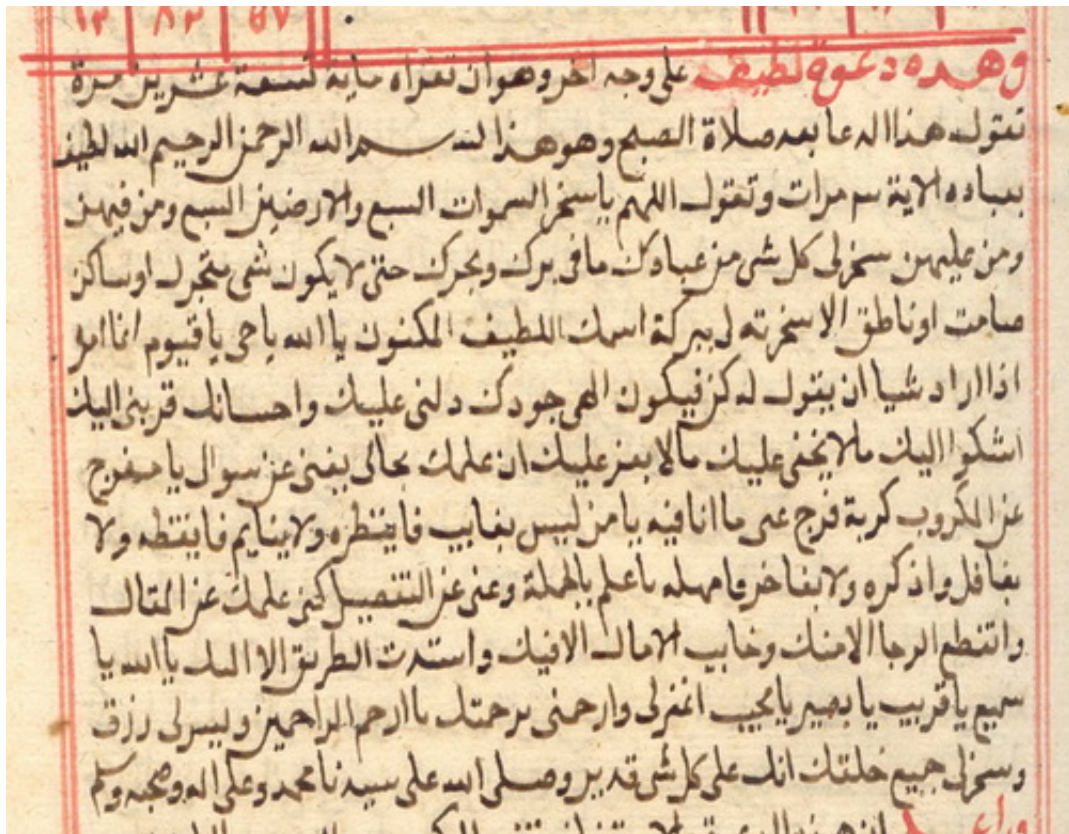 ٦٣ ٨٢ ٥٧
وهذه دعوة لطيفه على وجه اخر وهو ان تقراه ماية تسعة عشرين مرة
تقول هذا الدعا بعد صلاة الصبح وهو هذا بسم الله الرحمن الرحيم الله لطيف
بعباده الاية مرات وتقول اللهم يا سخر السموات السبع والارضين السبع ومن فيهن
ومن عليهن سخر لى كل شى من عبادك ما فى برك وبحرك حتى لا يكون شى متحرك او ساكن
صامت او ناطق الا سخرته لى ببركة اسمك اللطيف المكنون يا الله يا حى يا قيوم انما امر
اذا اراد شيا ان يقول له كن فيكون الهى جودك دلنى عليك واحسانك قربنى اليك
اشكوا اليك ما لا يخفى عليك مالا يعز عليك ان علمك بحالى يغنى عن سوال يا مفرج
عن المكروب كربة فرج عنى ما انا فيه يا من ليس بغايب فانتظره ولا بنايم فايقظه ولا
بغافل واذكره ولا بفاخر فامهله يا علم بالجملة وغنى عن التفصيل كفى علمك عن المقال
وانقطع الرجا الا منك وخايب الامال الا فيك واستدت الطريق الا اليك يا الله يا
سميع يا قريب يا بصير يا مجيب اغفر لى وارحمنى برحمتك يا ارحم الراحمين ويسر لى رزق
وسخر لى جميع خلقك انك على كل شى قدير وصلى الله على سيدنا محمد وعلى اله وصحبه وسلم